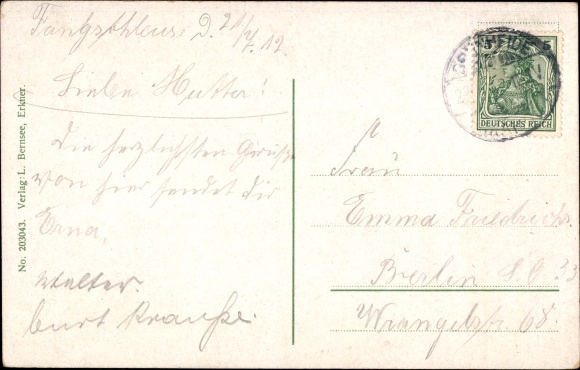 21/7.12.
Liebe Mutter!
Die herzlichsten Grüße
von hier sendet dir
Erna,
Walter.
Curt Krause.
No. 203043. Verlag: L. Bernsee, Erkner.
5
DEUTSCHES REICH
Frau
Emma Friedrichs
Berlin S.O. 33
Wrangelstr. 68.